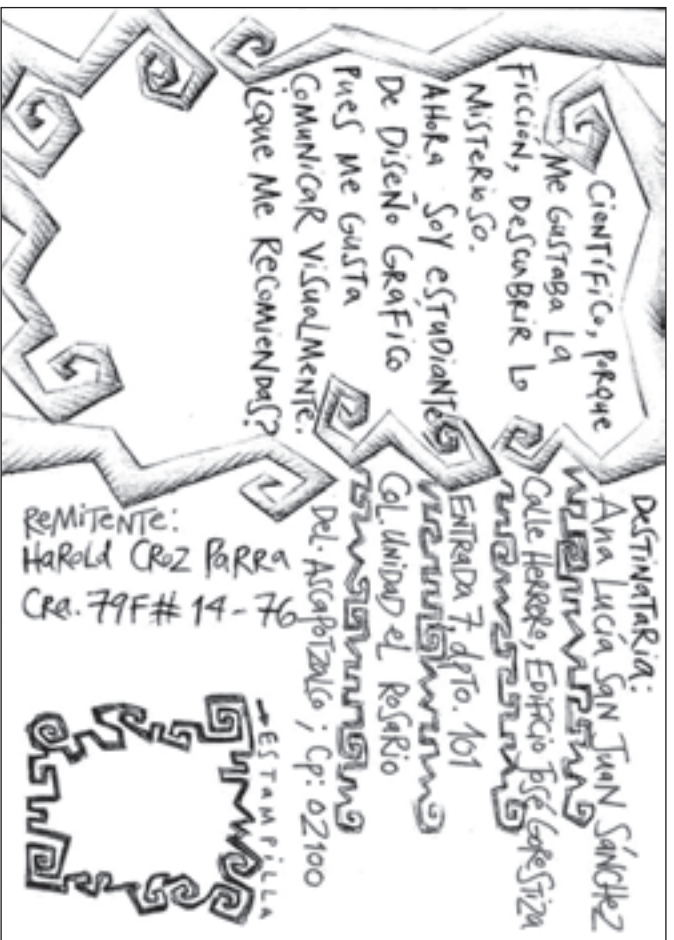 Científico, porque
me gustaba la
ficción, descubrir lo
misterioso.
Ahora soy estudiante
de Diseño Gráfico
pues me gusta
comunicar visualmente.
¿que me recomiendas?
Destinataria:
Ana Lucía San Juan Sánchez
Calle Herrero, Edificio José Gorestiza
Entrada 7, dpto. 101
Col. Unidad el Rosario
Del. Ascapotzalco; Cp: 02100
Remitente:
Harold Croz Parra
Cra. 79F # 14-76
→ESTAMPILLA